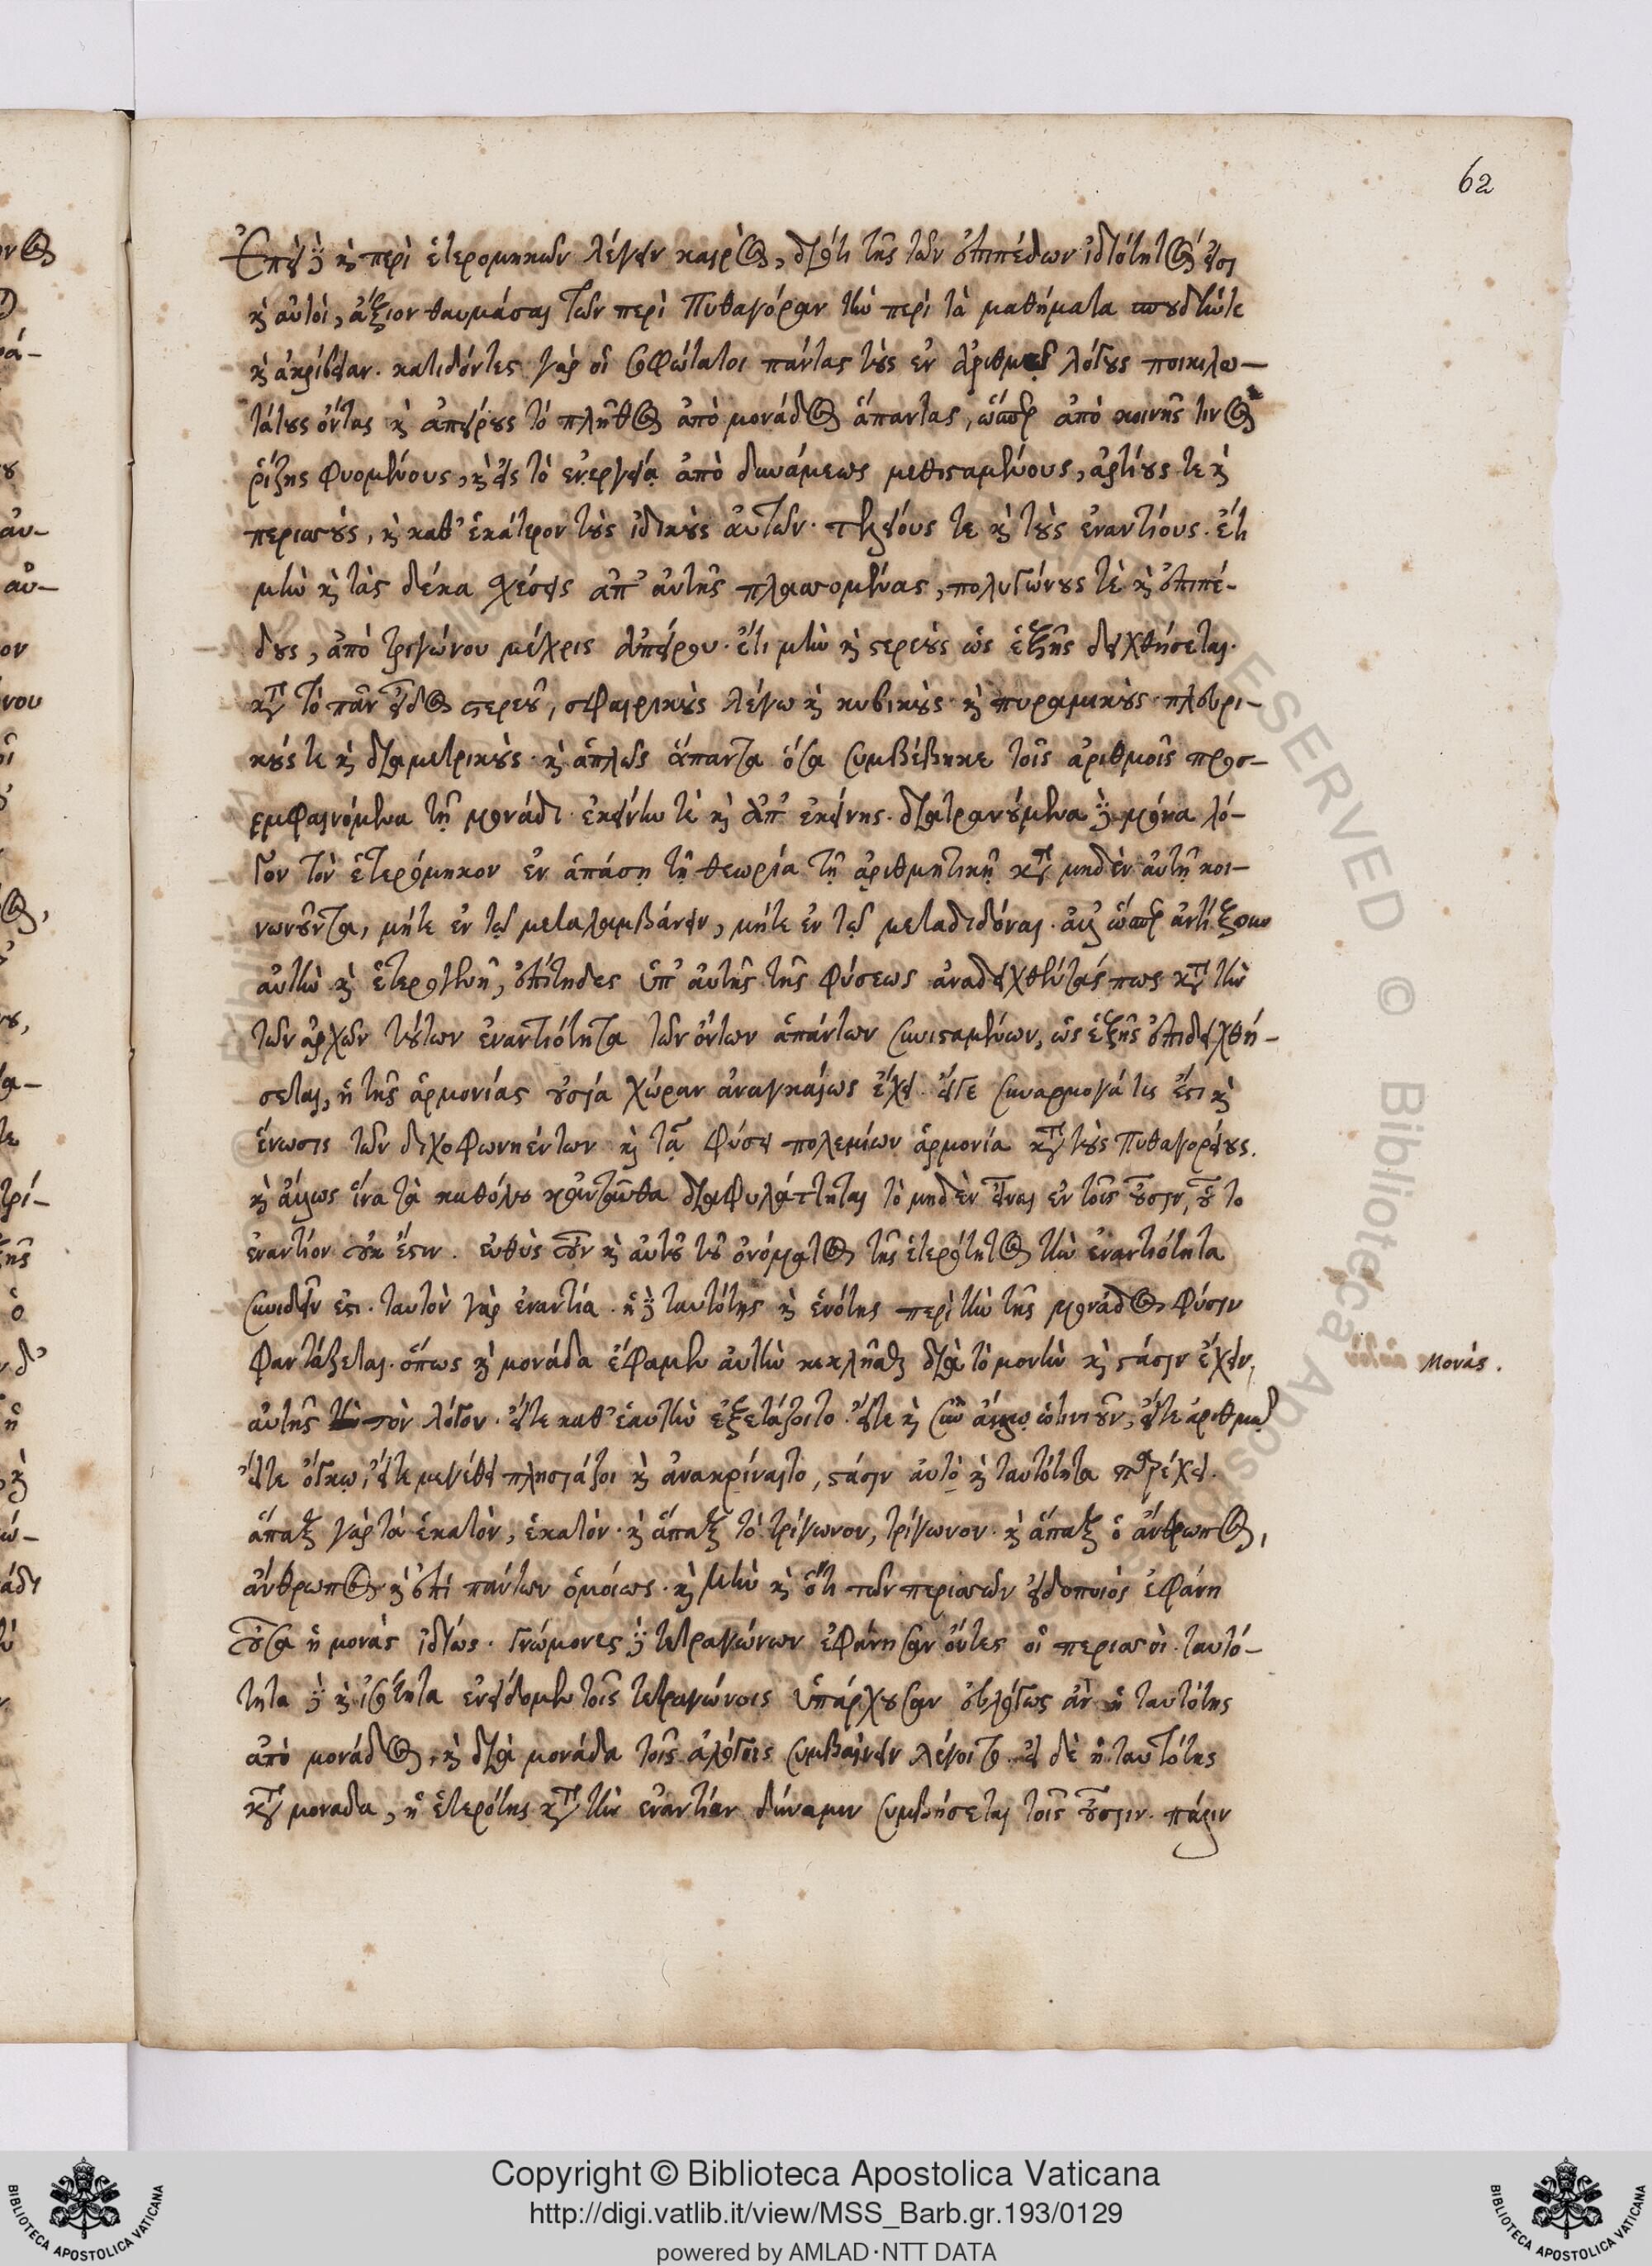 62
Ἐπεὶ δὲ καὶ περὶ ἑτερομηκῶν λέγειν καιρὸς, διότι τῆς τῶν ἐπιπέδων ἰδιότητός εἰσι
καὶ αὐτοὶ, ἄξιον θαυμάσαι τῶν περὶ Πυθαγόραν τὴν περὶ τὰ μαθήματα σπουδήν τε
καὶ ἀκρίβειαν. κατιδόντες γὰρ οἱ σοφώτατοι πάντας τοὺς ἐν ἀριθμῷ λόγους ποικιλω-
τάτους ὄντας καὶ ἀπείρους τὸ πλῆθος ἀπὸ μονάδος ἅπαντας, ὥσπερ ἀπὸ κοινῆς τινος
ῥίζης φυομένους, καὶ εἰς τὸ ἐνεργείᾳ ἀπὸ δυνάμεως μεθισταμένους, ἀρτίους τε καὶ
περισσοὺς, καὶ καθ' ἑκάτερον τοὺς ἰδικοὺς αὐτῶν. τελείους τε καὶ τοὺς ἐναντίους. ἔτι
μὴν καὶ τὰς δέκα σχέσεις ἀπ' αὐτῆς πλασσομένας, πολυγώνους τὲ καὶ ἐπιπέ-
δους, ἀπὸ τριγώνου μέχρις ἀπείρου. ἔτι μὴν καὶ στερεοὺς ὡς ἑξῆς δειχθήσεται.
κατὰ τὸ πᾶν εἶδος στερεοῦ, σφαιρικοὺς λέγω καὶ κυβικοὺς. καὶ πυραμικοὺς. πλευρι-
κούς τε καὶ διαμετρικοὺς. καὶ ἁπλῶς ἅπαντα ὅσα συμβέβηκε τοῖς ἀριθμοῖς προσ-
εμφαινόμενα τῇ μονάδι. ἐκείνῳ τὲ καὶ ἀπ' ἐκείνης. διατρανούμενα δὲ μόνα λό-
γον τὸν ἑτερόμηκον ἐν ἁπάσῃ τῇ θεωρίᾳ τῇ ἀριθμητικῇ κατὰ μηδὲν αὐτῇ κοι-
νωνοῦντα, μήτε ἐν τῷ μεταλαμβάνειν, μήτε ἐν τῷ μεταδιδόναι.
αὐτὴν καὶ ἑτερογενῆ, ἐπίτηδες ὑπ' αὐτῆς τῆς φύσεως ἀναδειχθέντας πως κατὰ τὴν
τῶν ἀρχῶν τούτων ἐναντιότητα τῶν ὄντων ἁπάντων συνισταμένων, ὡς ἑξῆς ἐπιδειχθή-
σεται, ἡ τῆς ἁρμονίας οὐσία χώραν ἀναγκαίως ἔχει. εἴγε συναρμογά τις ἐστὶ καὶ
ἕνωσις τῶν διχοφωνηέντων καὶ τᾷ φύσει πολεμίων ἁρμονία κατὰ τοὺς Πυθαγορείους.
καὶ ἄλλως ἵνα τὰ καθόλου κἀνταῦθα διαφυλάττηται τὸ μηδὲν εἶναι ἐν τοῖς οὖσιν, οὗ τὸ
ἐναντίον οὐκ ἔστιν. εὐθὺς οὖν καὶ αὐτοῦ τοῦ ὀνόματος τῆς ἑτερότητος τὴν ἐναντιότητα
συνιδεῖν ἐστι. ταυτὸν γὰρ ἐναντία. ἡ δὲ ταυτότης καὶ ἑνότης περὶ τὴν τῆς μονάδος φύσιν
φαντάζεται. ὅπως καὶ μονάδα ἔφαμεν αὐτὴν κεκλῆσθαι διὰ τὸ μονὴν καὶ στάσιν ἔχειν,
Μονάς.
αὐτῆς τὸν λόγον. εἴτε καθ' ἑαυτὴν ἐξετάζοιτο. εἴτε καὶ σὺν ἄλλῳ ὁτινιοῦν, εἴτε ἀριθμῷ
εἴτε ὄγκῳ, εἴτε μεγέθει πλησιάζοι καὶ ἀνακρίναιτο, στάσιν αὐτῷ καὶ ταυτότητα παρέχει.
ἅπαξ γὰρ τὰ ἑκατὸν, ἑκατόν. καὶ ἅπαξ τὸ τρίγωνον, τρίγωνον. καὶ ἅπαξ ὁ ἄνθρωπος,
ἄνθρωπος καὶ ἐπὶ πάντων ὁμοίως. καὶ μὴν καὶ ὅτι τῶν περισσῶν εἰδοποιὸς ἐφάνη
οὖσα ἡ μονὰς ἰδίως. γνώμονες δὲ τετραγώνων ἐφάνησαν ὄντες οἱ περισσοί. ταυτό-
τητα δὲ καὶ ἰσότητα ἐνείδομεν τοῖς τετραγώνοις ὑπάρχουσαν εὐλόγως ἂν ἡ ταυτότης
ἀπὸ μονάδος, καὶ διὰ μονάδα τοῖς ἀλόγοις συμβαίνειν λέγοιτο. εἰ δὲ ἡ ταυτότης
κατὰ μοναδα, ἡ ἑτερότης κατὰ τὴν ἐναντίαν δύναμιν συμβήσεται τοῖς οὖσιν. πάλιν
Copyright © Biblioteca Apostolica Vaticana
http://digi.vatlib.it/view/MSS_Barb.gr.193/0129
powered by AMLAD·NTT DATA
BIBLIOTECA APOSTOLICA VATICANA
BIBLIOTECA APOSTOLICA VATICANA